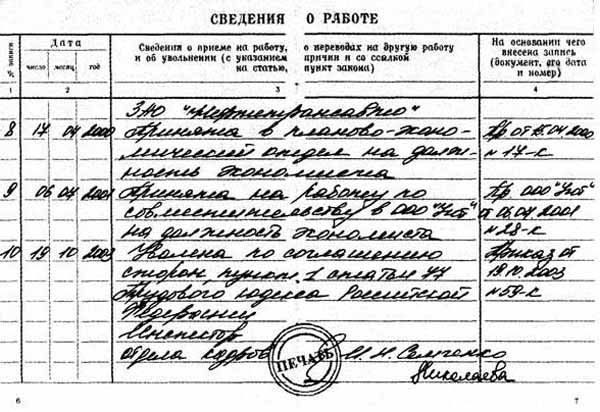 СВЕДЕНИЯ О РАБОТЕ
№ записи
Дата
число
месяц
год
Сведения о приеме на работу, о переводах на другую работу
и об увольнении (с указанием причин и со ссылкой
на статью, пункт закона)
На основании чего
внесена запись
(документ, его дата
и номер)
1 2 3 4
ЗАО "Нефтетрансавто"
8 17 04 2000 Принята в планово-эконо- Пр от 15.04.2000
мический отдел на долж- №17-к
ность экономиста
9 06 04 2001 Принята на работу по Пр ООО "Уют"
совместительству в ООО "Уют" от 06.04.2001
на должность экономиста №28-к
10 19 10 2003 Уволена по соглашению Приказ от
сторон, пункт 1 статьи 77 19.10.2003
Трудового кодекса Российской №59-к
Федерации
Инспектор
отдела кадров ПЕЧАТЬ И.Н. Семченко
Николаева
6 7